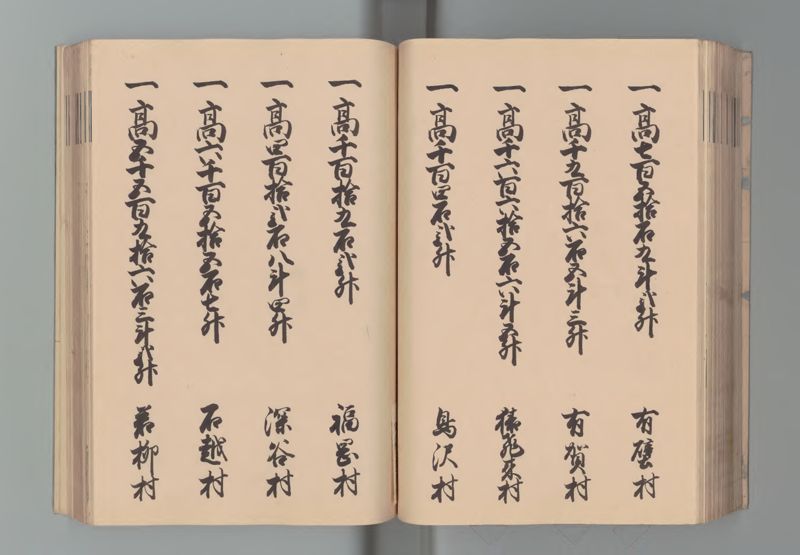 一高七百五拾石九斗弐升 有壁村
一高千九百拾六石五斗三升 有賀村
一高千六百六拾五石六斗五升 猿飛来村
一高千百四石弐升 鳥沢村
一高千百拾九石弐升 福岡村
一高四百拾弐石八斗四升 深谷村
一高六千百五拾五石七升 石越村
一高五千五百九拾六石三斗弐升 若柳村